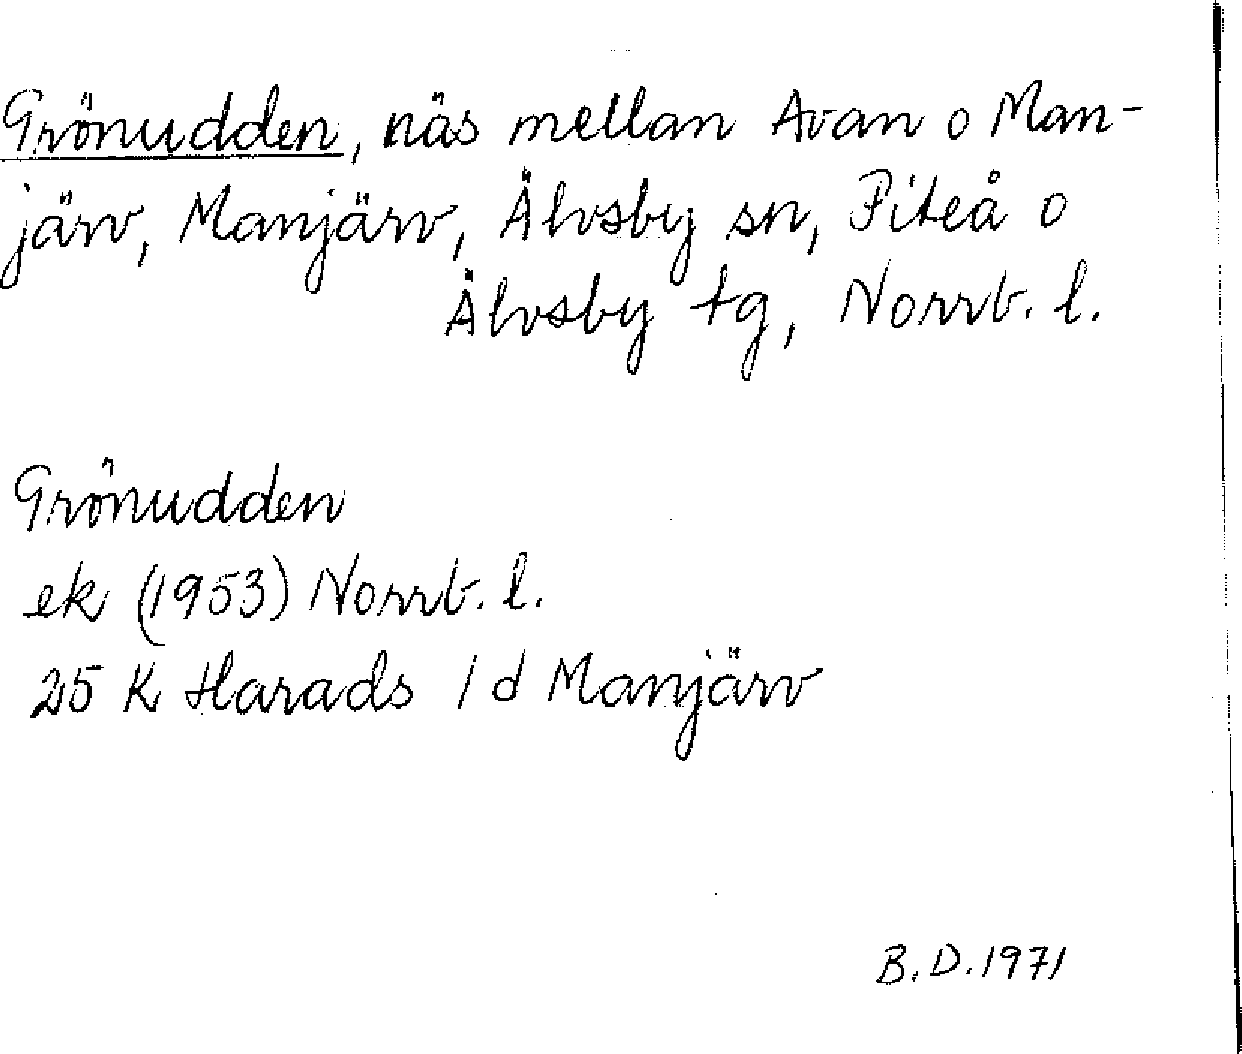 Grönudden, näs mellan Avan o Man-
järv, Manjärv, Älvsby sn, Piteå o
Älvsby tg, Norrb. l.
Grönudden
ek (1953) Norrb. l.
25 K Harads 1 d Manjärv
B.D.1971